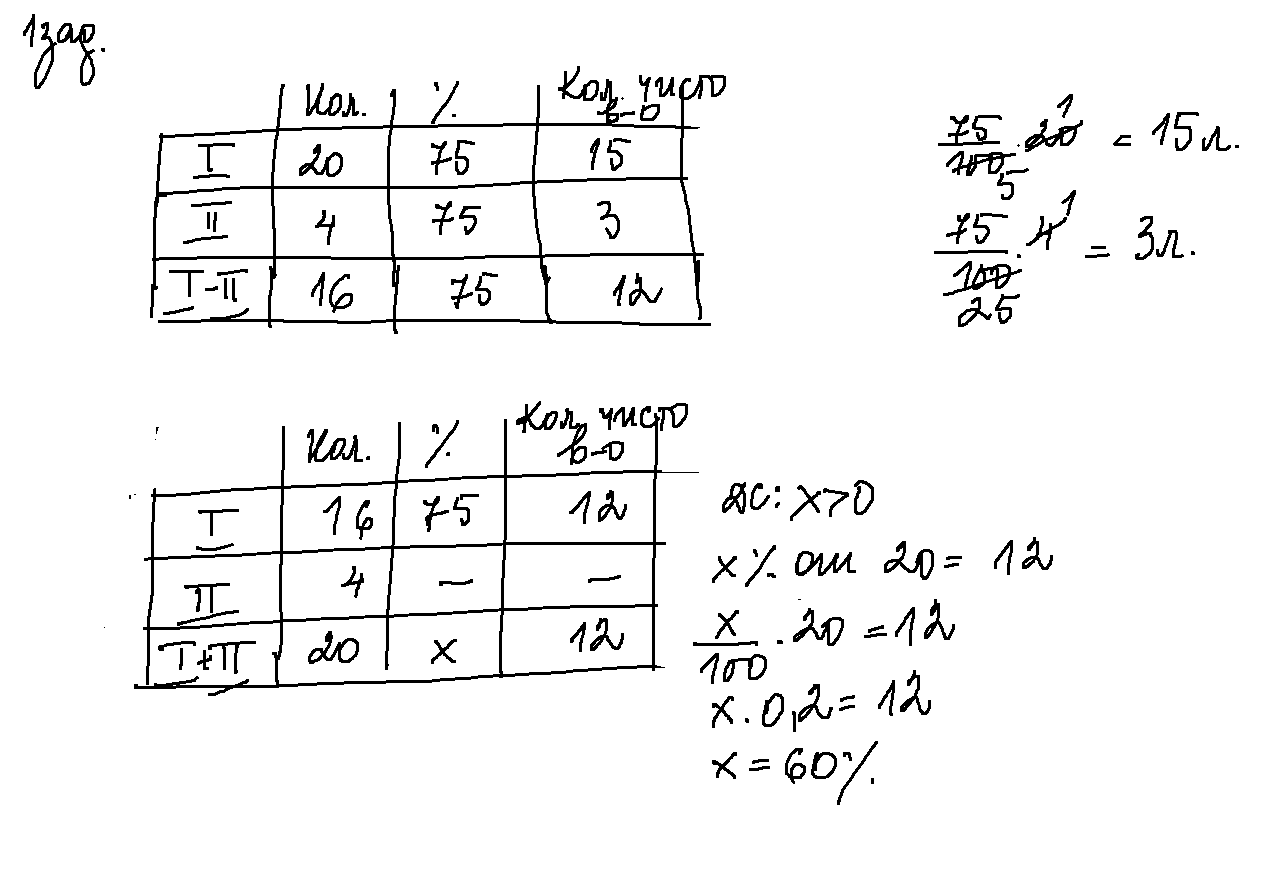 1 зад.
Кол. % Кол. чисто в-о
I 20 75 15
II 4 75 3
I-II 16 75 12
75/100 5 . 20 1 = 15 л.
75/100 25 . 4 1 = 3 л.
Кол. % Кол. чисто в-о
I 16 75 12
II 4 — —
I+II 20 x 12
ДС: x>0
x % от 20 = 12
x/100 . 20 = 12
x . 0,2 = 12
x = 60%